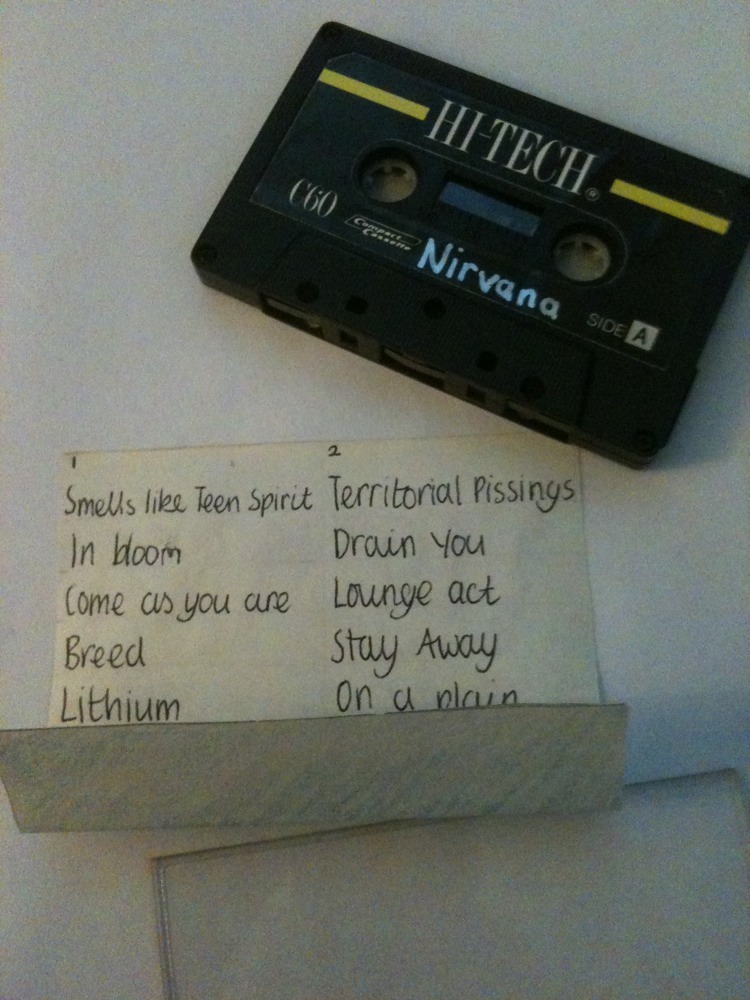 HI-TECH®
C60
Compact
Cassette
Nirvana
SIDE A
1
Smells like Teen Spirit
In bloom
Come as you are
Breed
Lithium
2
Territorial Pissings
Drain You
Lounge act
Stay Away
On a plain